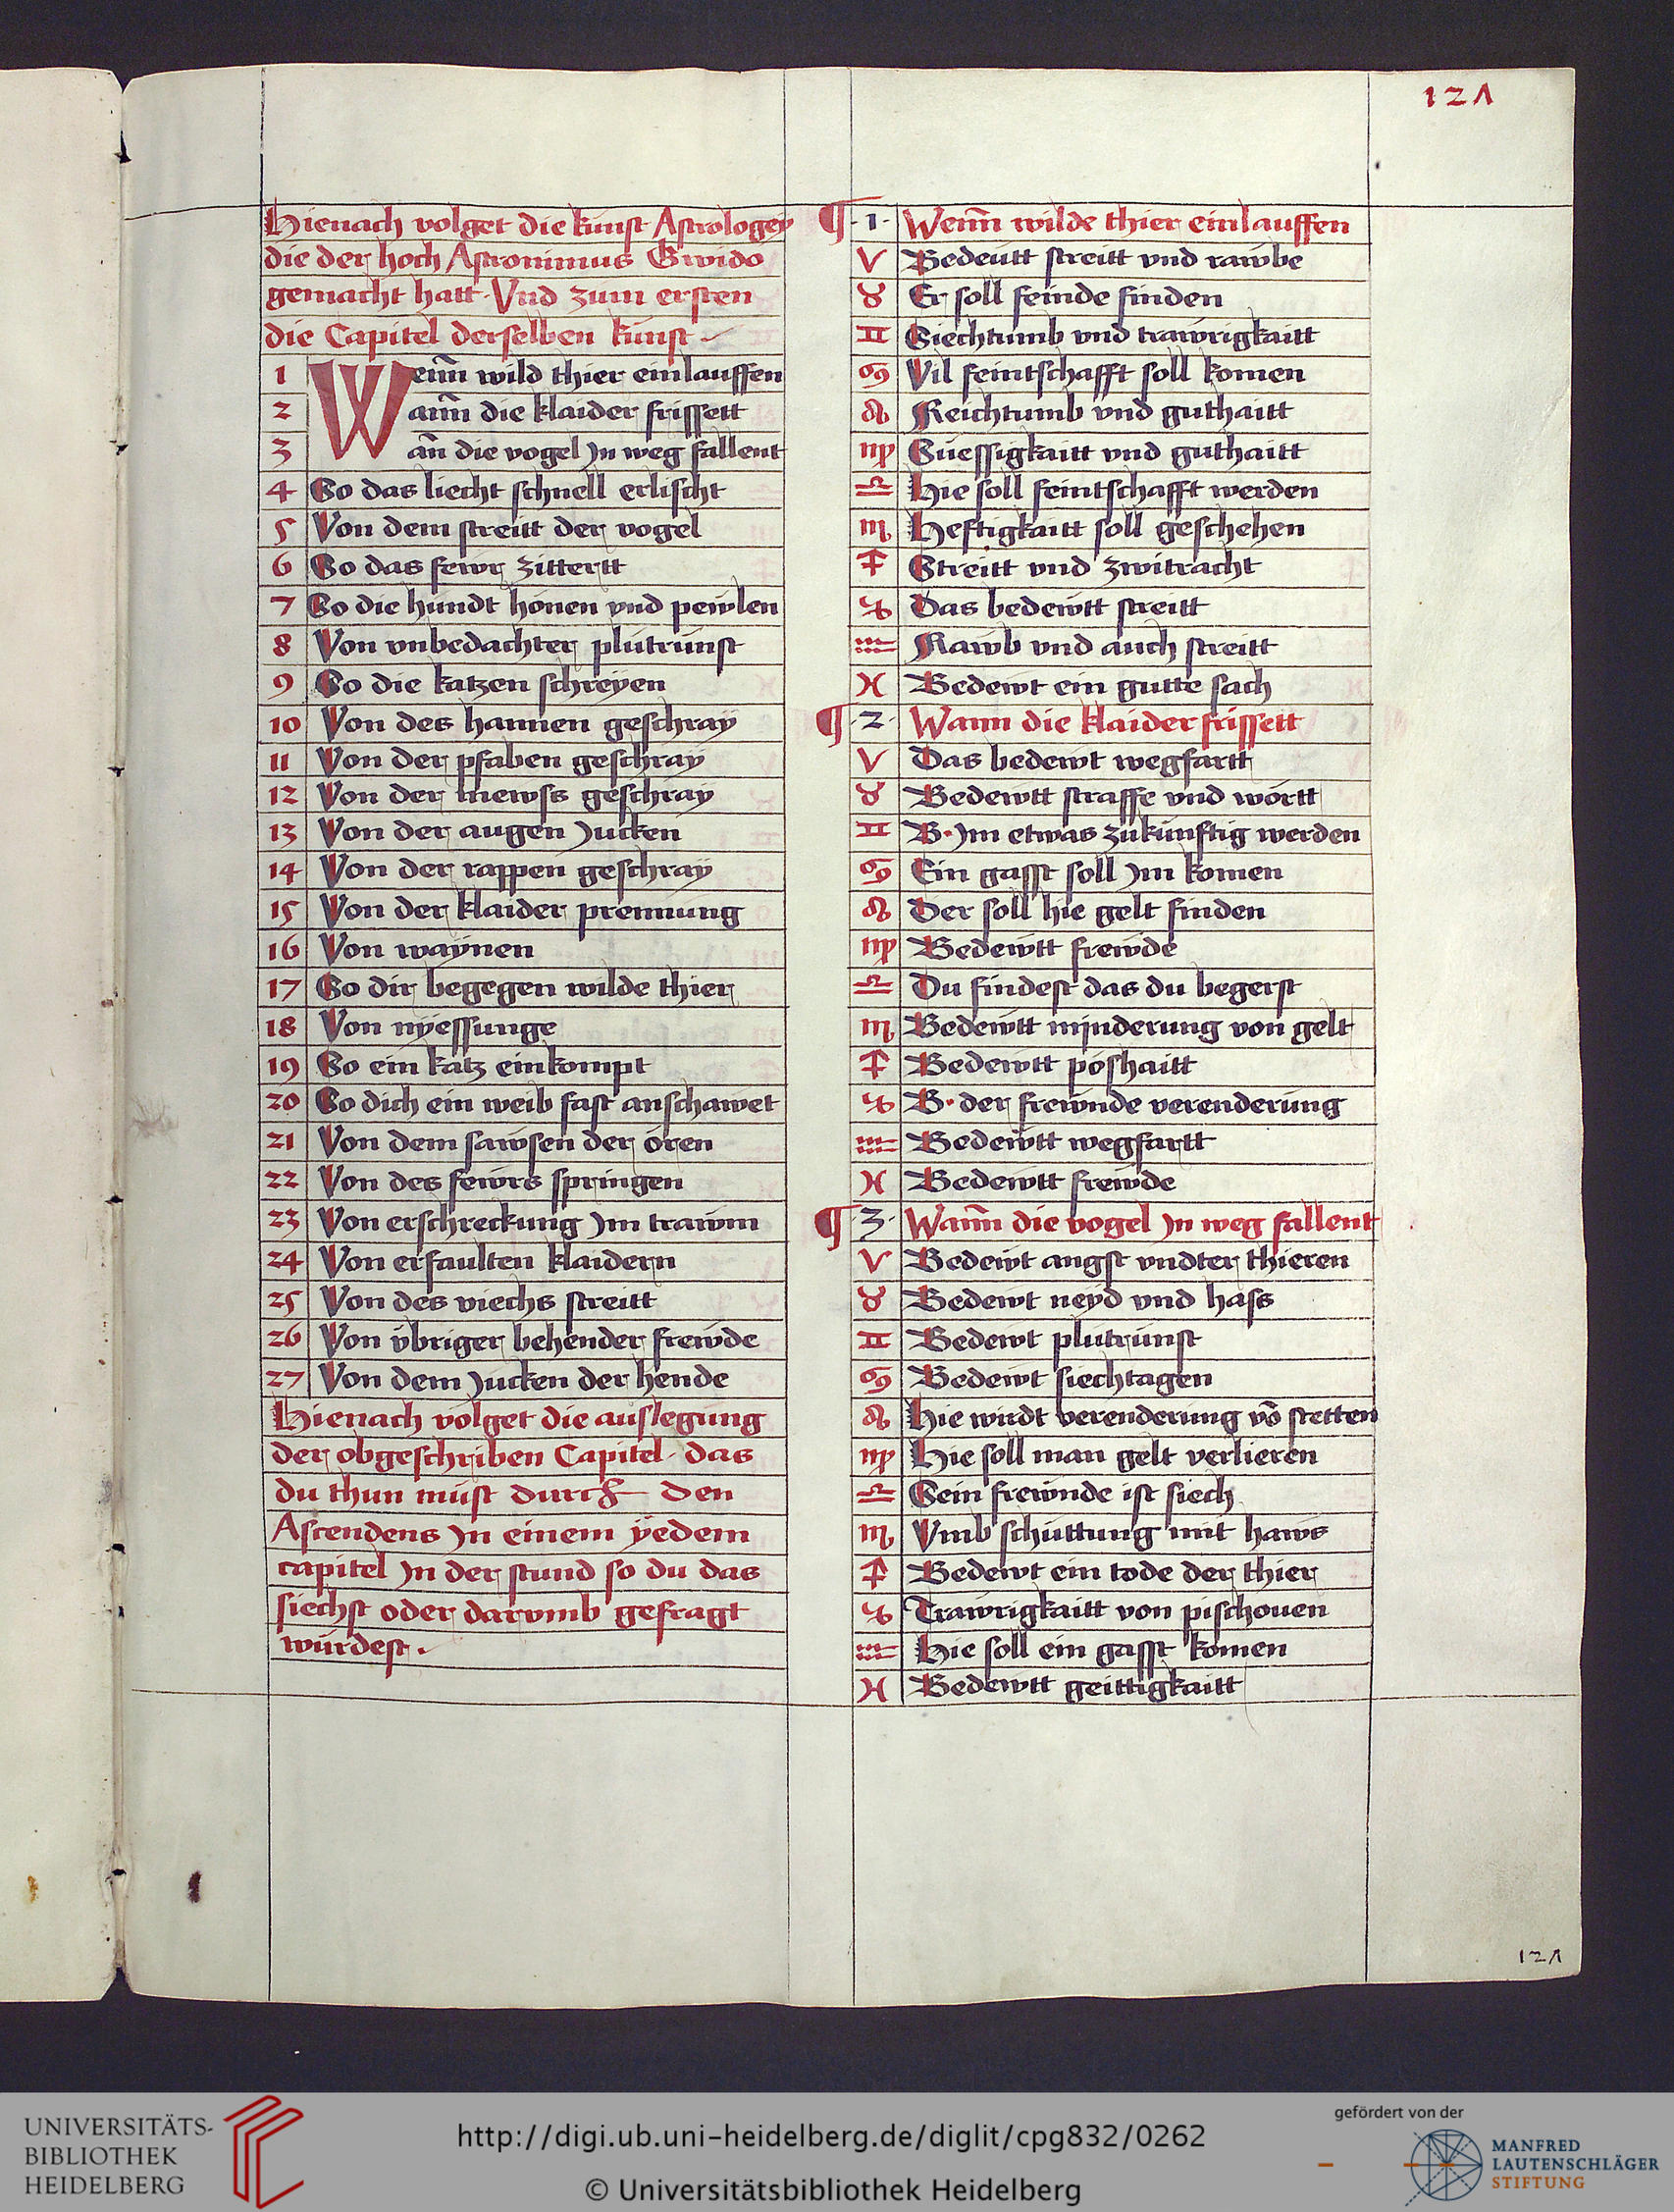 121
Hienach volget die kunst Astrologey
die der hoch Astronimus Gwido
gemacht hatt · Vnd zum ersten
die Capitel derselben kunst
1 Wenn̄ wild thier einlauffen
2 Wann̄ die klaider frissett
3 Wan̄ die vogel Jn weg fallent
4 So das liecht schnell erlischt
5 Von dem streitt der vogel
6 So das fewr zittertt
7 So die hundt hönen vnd pewlen
8 Von vnbedachter plutrunst
9 So die katzen schreyen
10 Von des hannen geschraÿ
11 Von der pfaben geschraÿ
12 Von der mewss geschraÿ
13 Von der augen Jucken
14 Von der rappen geschraÿ
15 Von der klaider prennung
16 Von waÿnen
17 So dir begegen wilde thier
18 Von nÿessunge
19 So ein katz einkompt
20 So dich ein weib fast anschawet
21 Von dem sawsen der oren
22 Von des fewrs springen
23 Von erschreckung Jm trawm
24 Von erfaulten klaidern
25 Von des viechs streitt
26 Von vbriger behender frewde
27 Von dem Jucken der hende
Hienach volget die auslegung
der obgeschriben Capitel · das
du thun must durch den
Ascendens Jn einem ÿedem
capitel Jn der stund so du das
siechst oder darvmb gefragt
würdest ·
¶ · 1 · Wenn̄ wilde thier einlauffen
♈ Bedeutt streitt vnd rawbe
♉ Er soll feinde finden
♊ Siechtumb vnd trawrigkaitt
♋ Vil feintschafft soll komen
♌ Reichtumb vnd guthaitt
♍ Suessigkaitt vnd guthaitt
♎ Hie soll feintschafft werden
♏ Heftigkaitt soll geschehen
♐ Streitt vnd zwitracht
♑ Das bedewtt streitt
♒ Rawb vnd auch streitt
♓ Bedewt ein gutte sach
¶ · 2 · Wann die klaider frissett
♈ Das bedewt wegfartt
♉ Bedewtt straffe vnd wortt
♊ B · Jm etwas zukunftig werden
♋ Ein gasst soll Jm komen
♌ Der soll hie gelt finden
♍ Bedewtt frewde
♎ Du findest das du begerst
♏ Bedewtt mynderung von gelt
♐ Bedewtt poshaitt
♑ B · der frewnde verenderung
♒ Bedewtt wegfartt
♓ Bedewtt frewde
¶ · 3 · Wann̄ die vogel Jn weg fallent
♈ Bedewt angst vndter thieren
♉ Bedewt neyd vnd hass
♊ Bedewt plutrunst
♋ Bedewt siechtagen
♌ Hie wirdt verenderung vō stetten
♍ Hie soll man gelt verlieren
♎ Sein frewnde ist siech
♏ Vmb schuttung mit haws
♐ Bedewt ein tode der thier
♑ Trawrigkaitt von pischouen
♒ Hie soll ein gasst komen
♓ Bedewtt geittigkaitt
121
UNIVERSITÄTS-
BIBLIOTHEK
HEIDELBERG
http://digi.ub.uni-heidelberg.de/diglit/cpg832/0262
© Universitätsbibliothek Heidelberg
gefördert von der
MANFRED
LAUTENSCHLÄGER
STIFTUNG